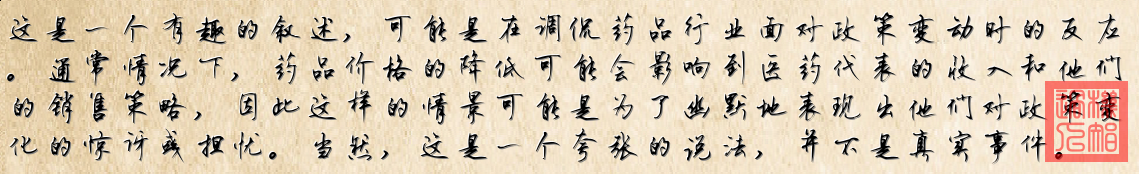 这是一个有趣的叙述，可能是在调侃药品行业面对政策变动时的反应
。通常情况下，药品价格的降低可能会影响到医药代表的收入和他们
的销售策略，因此这样的情景可能是为了幽默地表现出他们对政策变
化的惊讶或担忧。当然，这是一个夸张的说法，并不是真实事件。